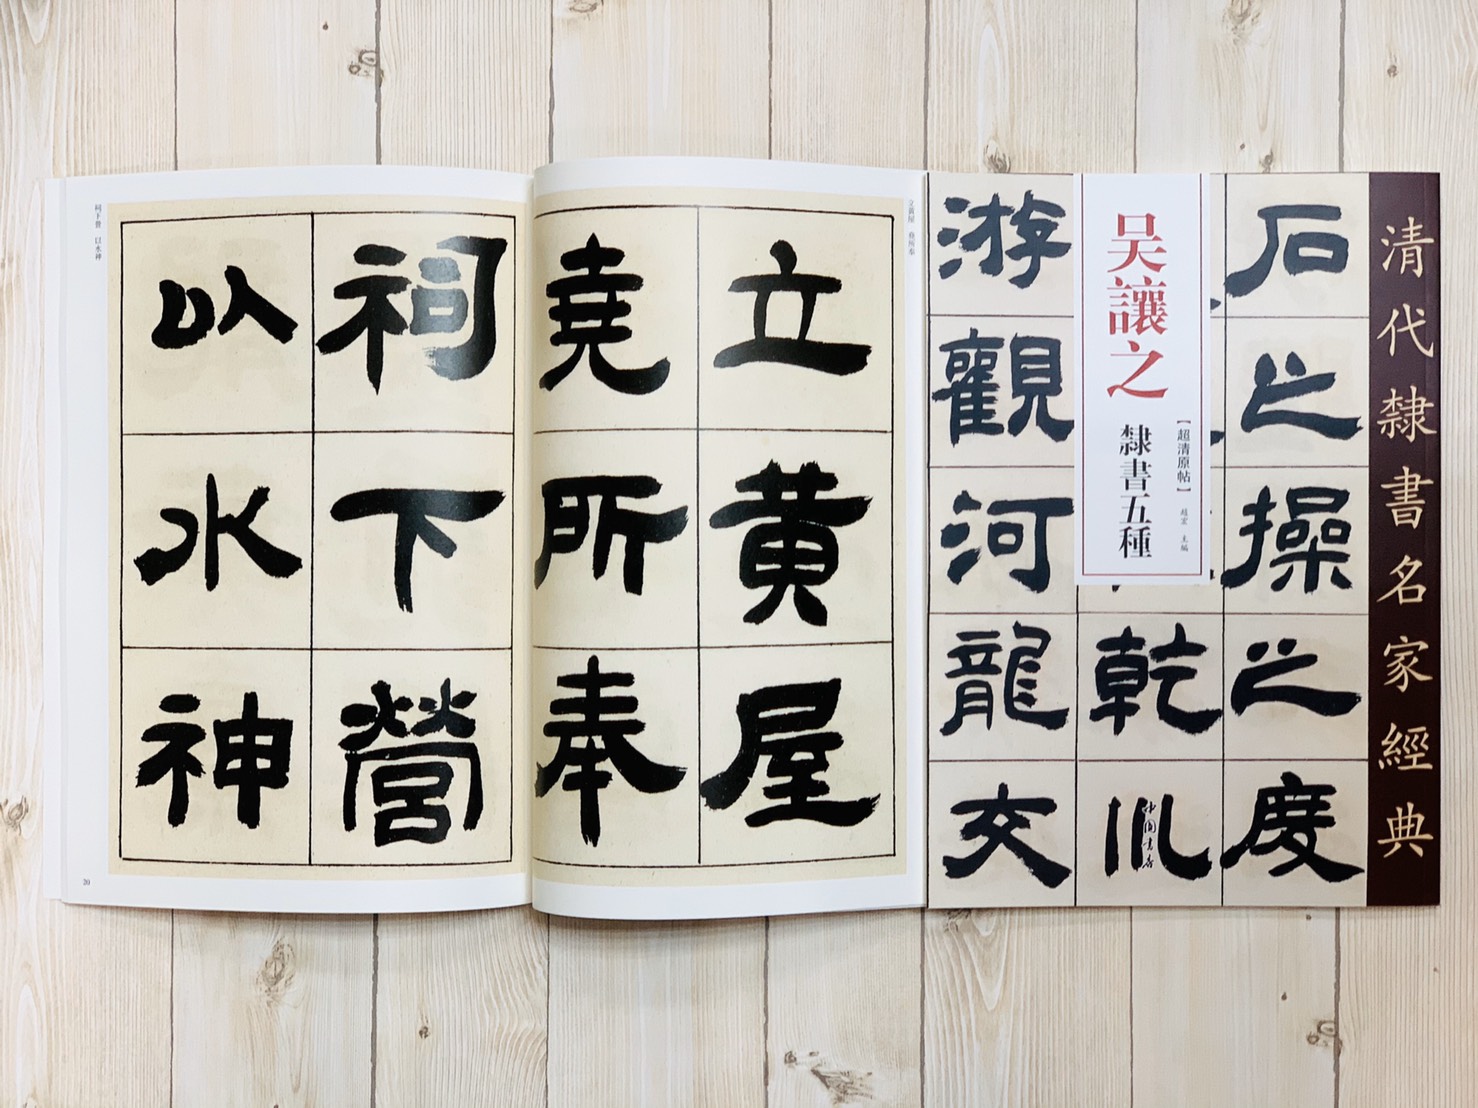 清代隸書名家經典
石之操之度
乾川
游觀河龍交
吴讓之
隸書五種
【超清原帖】
趙宏 主編
中國書店
立黃屋 堯所奉
立黃屋
堯所奉
祠下營
以水神
祠下營 以水神
20